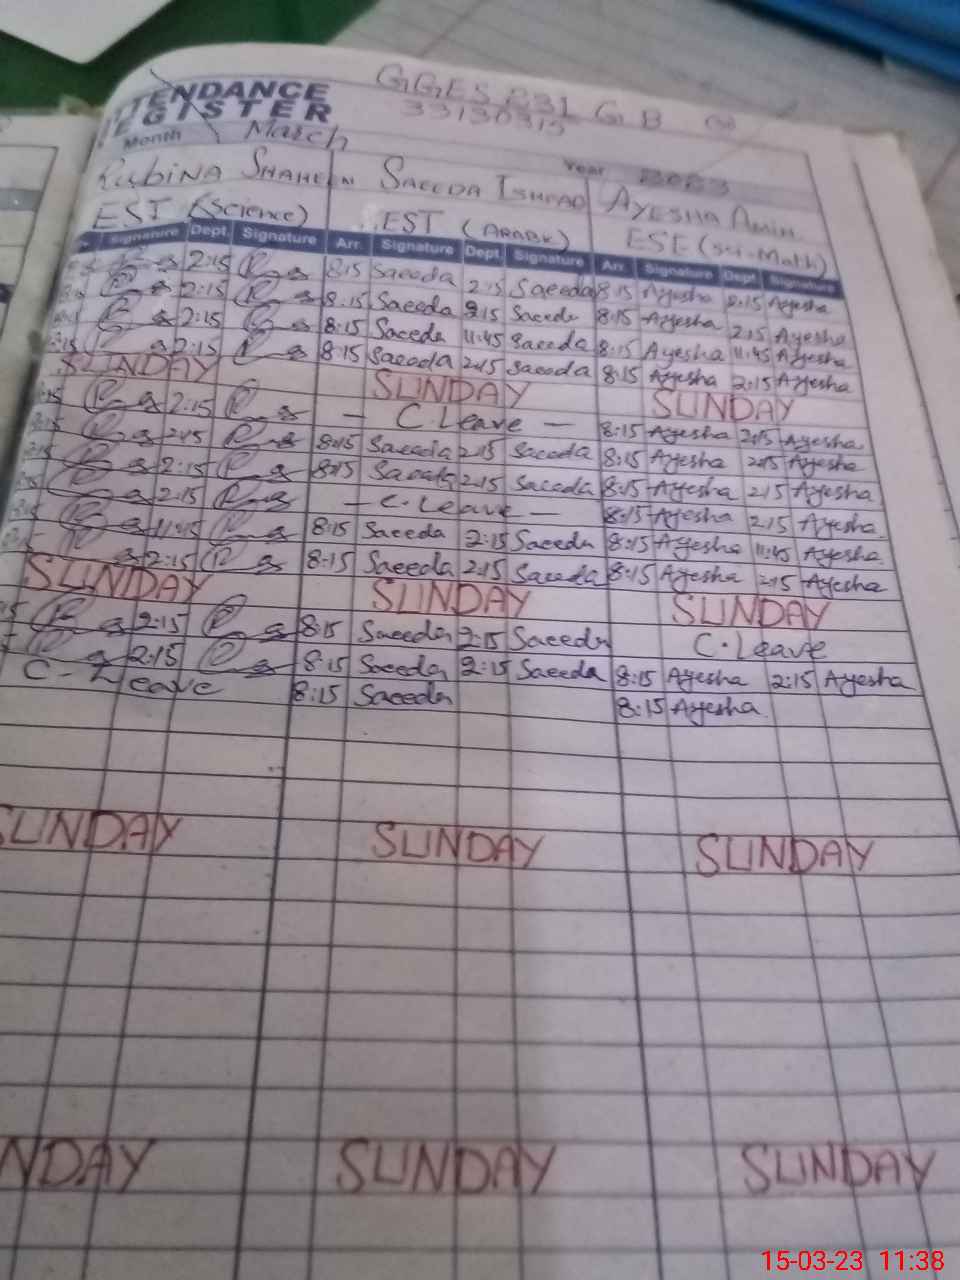 TENDANCE GGES 231 GB
EGISTER 33130315
Month March Year 2023
RUBINA SHAHEEN SAEEDA ISHFAQ AYESHA AMIN
EST (Science) EST (ARABIC) ESE (Sci-Math)
Signature Dept. Signature Arr. Signature Dept. Signature Arr. Signature Dept. Signature
2:15 8:15 Saeeda 2:15 Saeeda 8:15 Ayesha 2:15 Ayesha
2:15 8:15 Saeeda 2:15 Saeeda 8:15 Ayesha 2:15 Ayesha
2:15 8:15 Saeeda 11:45 Saeeda 8:15 Ayesha 11:45 Ayesha
2:15 8:15 Saeeda 2:15 Saeeda 8:15 Ayesha 2:15 Ayesha
SUNDAY SUNDAY SUNDAY
2:15 – C.Leave – 8:15 Ayesha 2:15 Ayesha
2:15 8:15 Saeeda 2:15 Saeeda 8:15 Ayesha 2:15 Ayesha
2:15 8:15 Saeeda 2:15 Saeeda 8:15 Ayesha 2:15 Ayesha
2:15 – C.Leave – 8:15 Ayesha 2:15 Ayesha
11:45 8:15 Saeeda 2:15 Saeeda 8:15 Ayesha 11:45 Ayesha
2:15 8:15 Saeeda 2:15 Saeeda 8:15 Ayesha 2:15 Ayesha
SUNDAY SUNDAY SUNDAY
2:15 8:15 Saeeda 2:15 Saeeda C.Leave
2:15 8:15 Saeeda 2:15 Saeeda 8:15 Ayesha 2:15 Ayesha
C-Leave 8:15 Saeeda 8:15 Ayesha
SUNDAY SUNDAY SUNDAY
NDAY SUNDAY SUNDAY
15-03-23 11:38